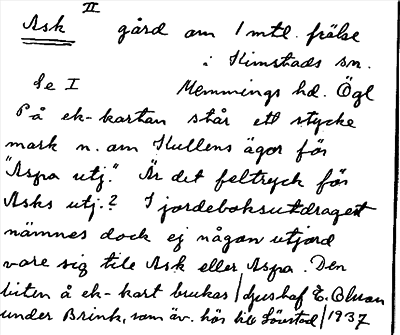 Ask II gård om 1 mtl. frälse
i Kimstads sn.
Se I Memmings hd. Ögl
På ek-kartan står ett stycke
mark n. om Kullens ägor för
"Aspa utj." Är det feltryck för
Asks utj.? I jordeboksutdraget
nämnes dock ej någon utjord
vare sig till Ask eller Aspa. Den
biten å ek-kart brukas / ljushaf E. Olsson
under Brink, som äv. hör till Löfstad / 1937